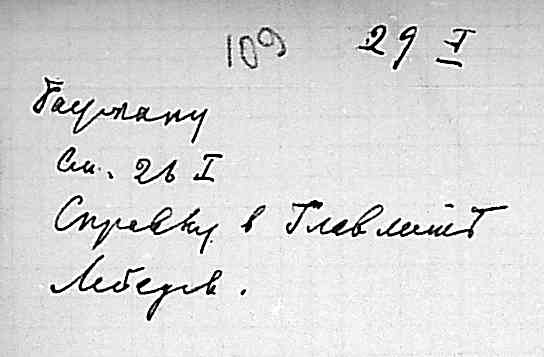 109 29 V
Бауману
См. 26 I
Справку в Главлит
Лебедев.